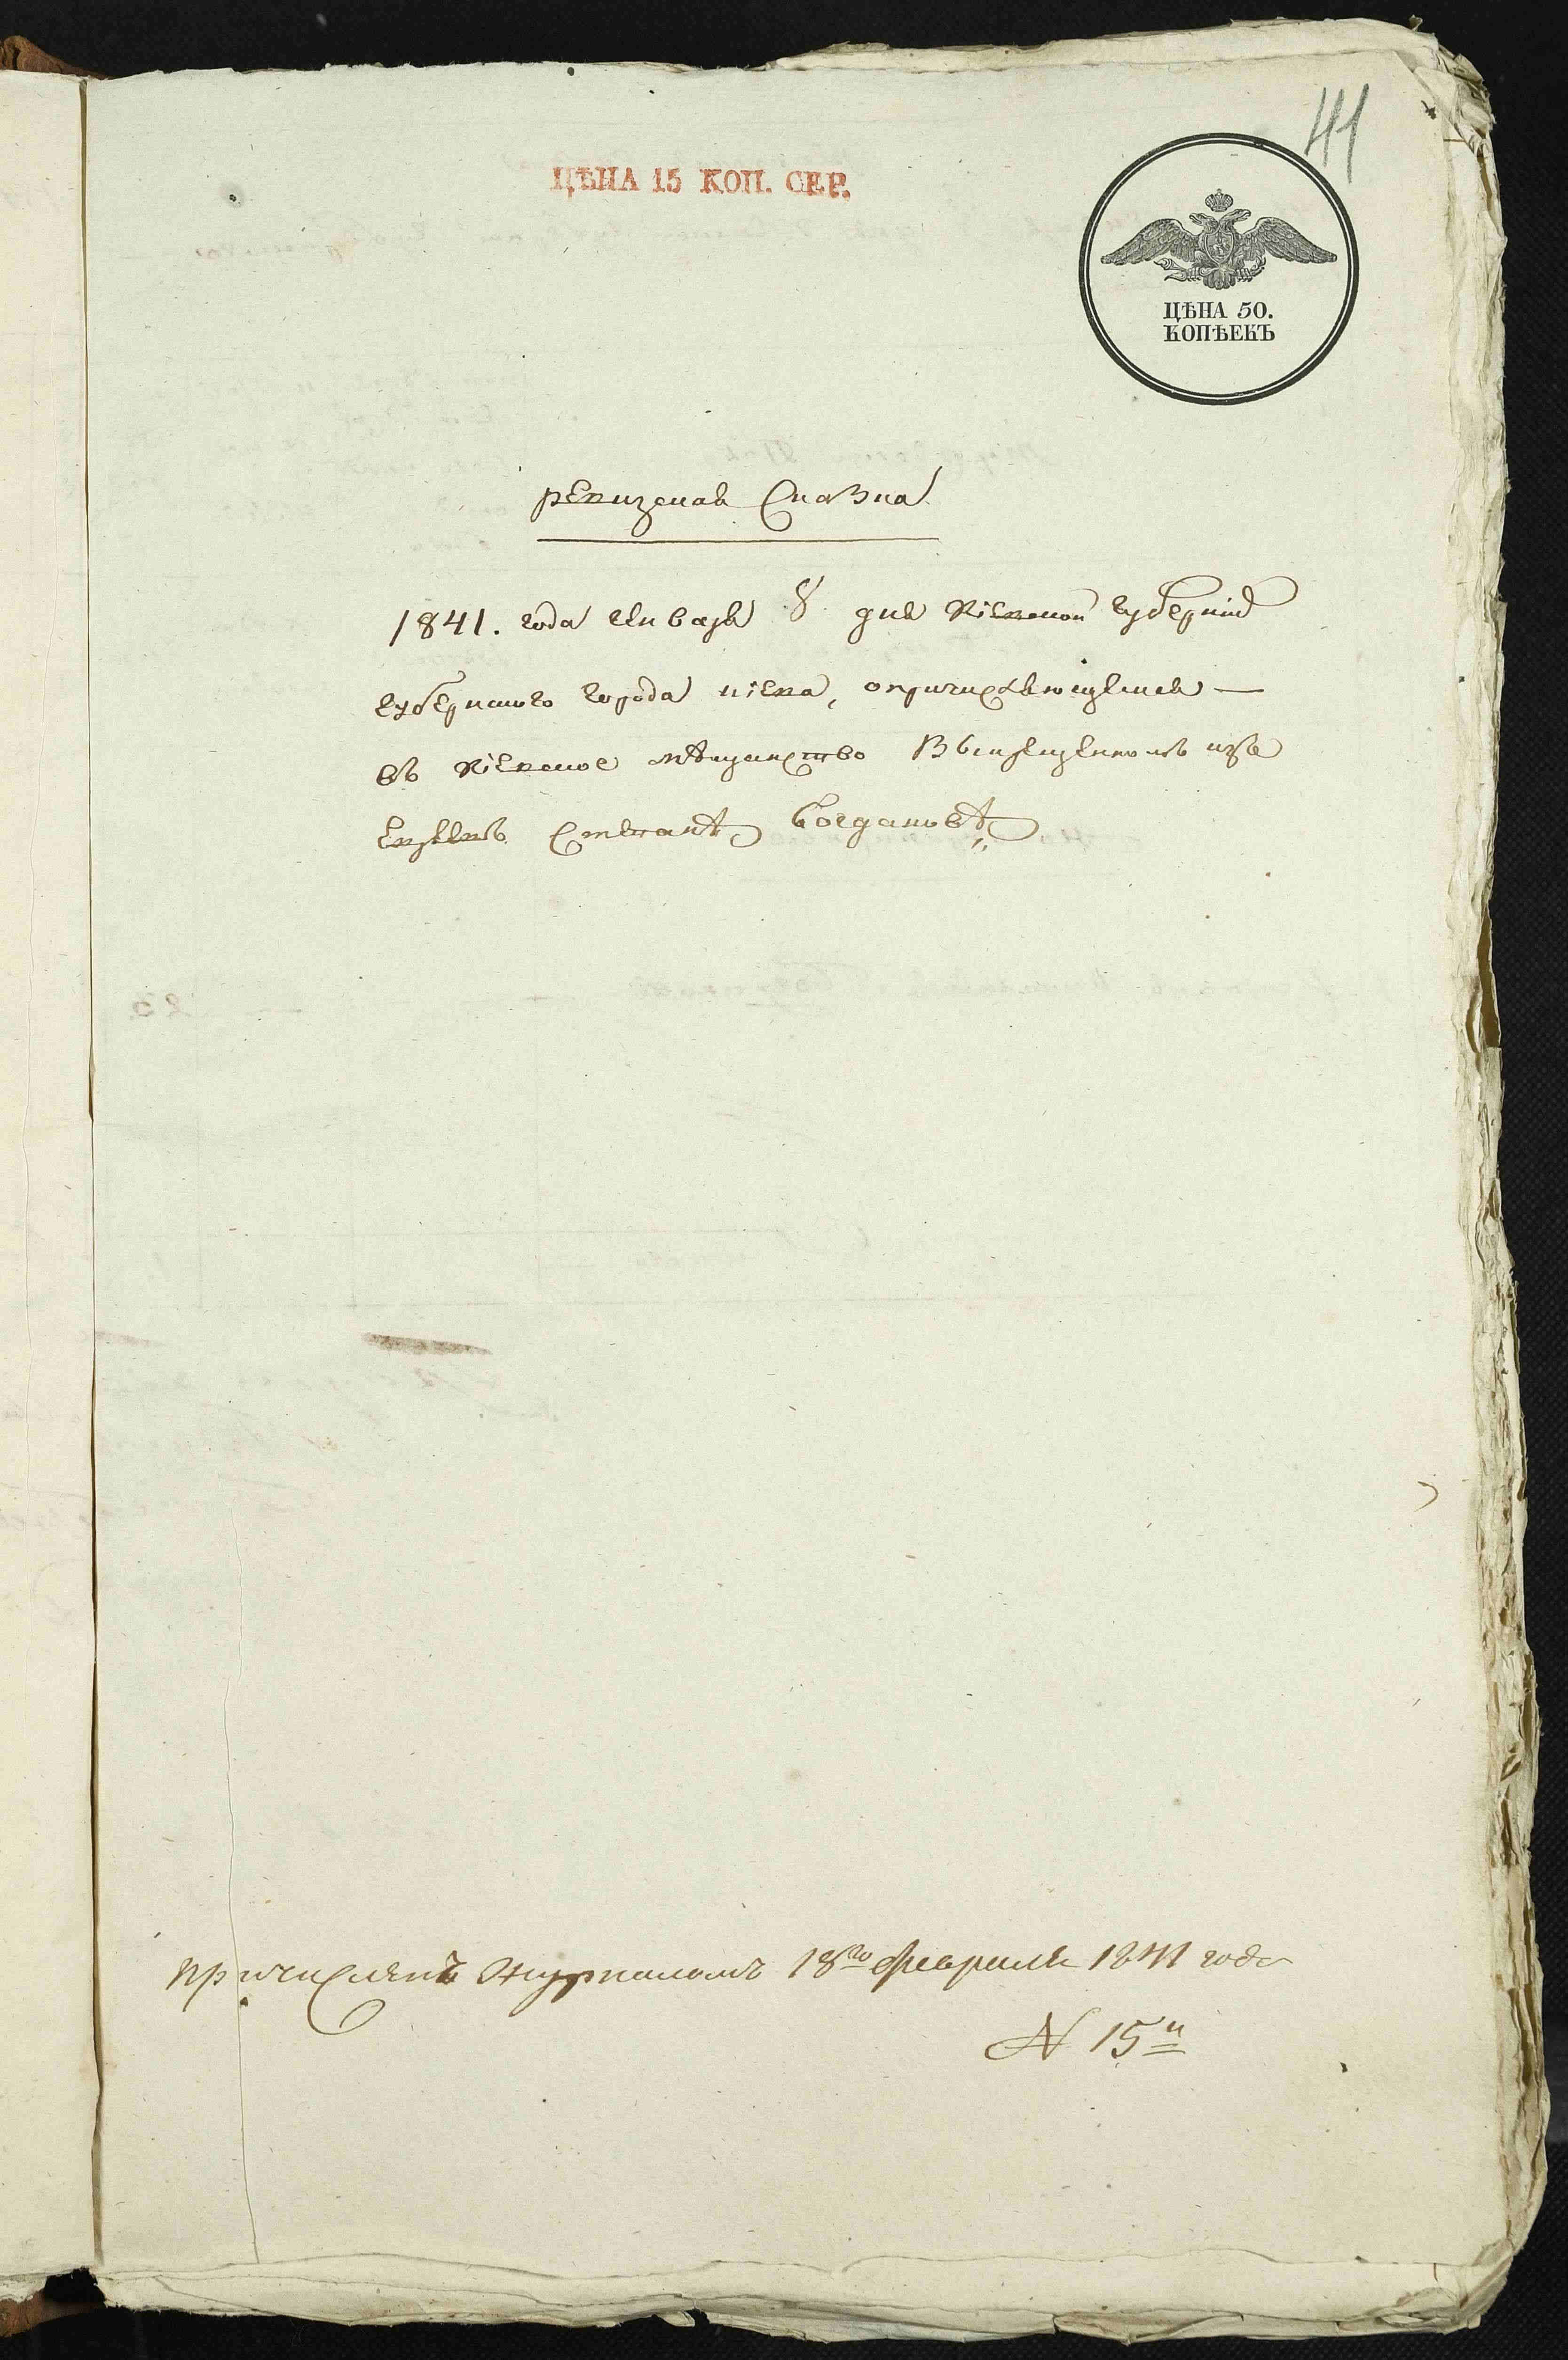 41
ЦѢНА 15 КОП. СЕР.
ЦѢНА 50.
КОПѢЕКЪ
ревизская Сказка
1841. года Января 8 дня Кіевской Губерніи
Губернского города Кіева, опричисляющемся —
въ Кіевское мѣщанство Выкрещенномъ изъ
Евреевъ Степанѣ Богдановѣ
причисленъ Журналомъ 18го февраля 1841 года
N 15й